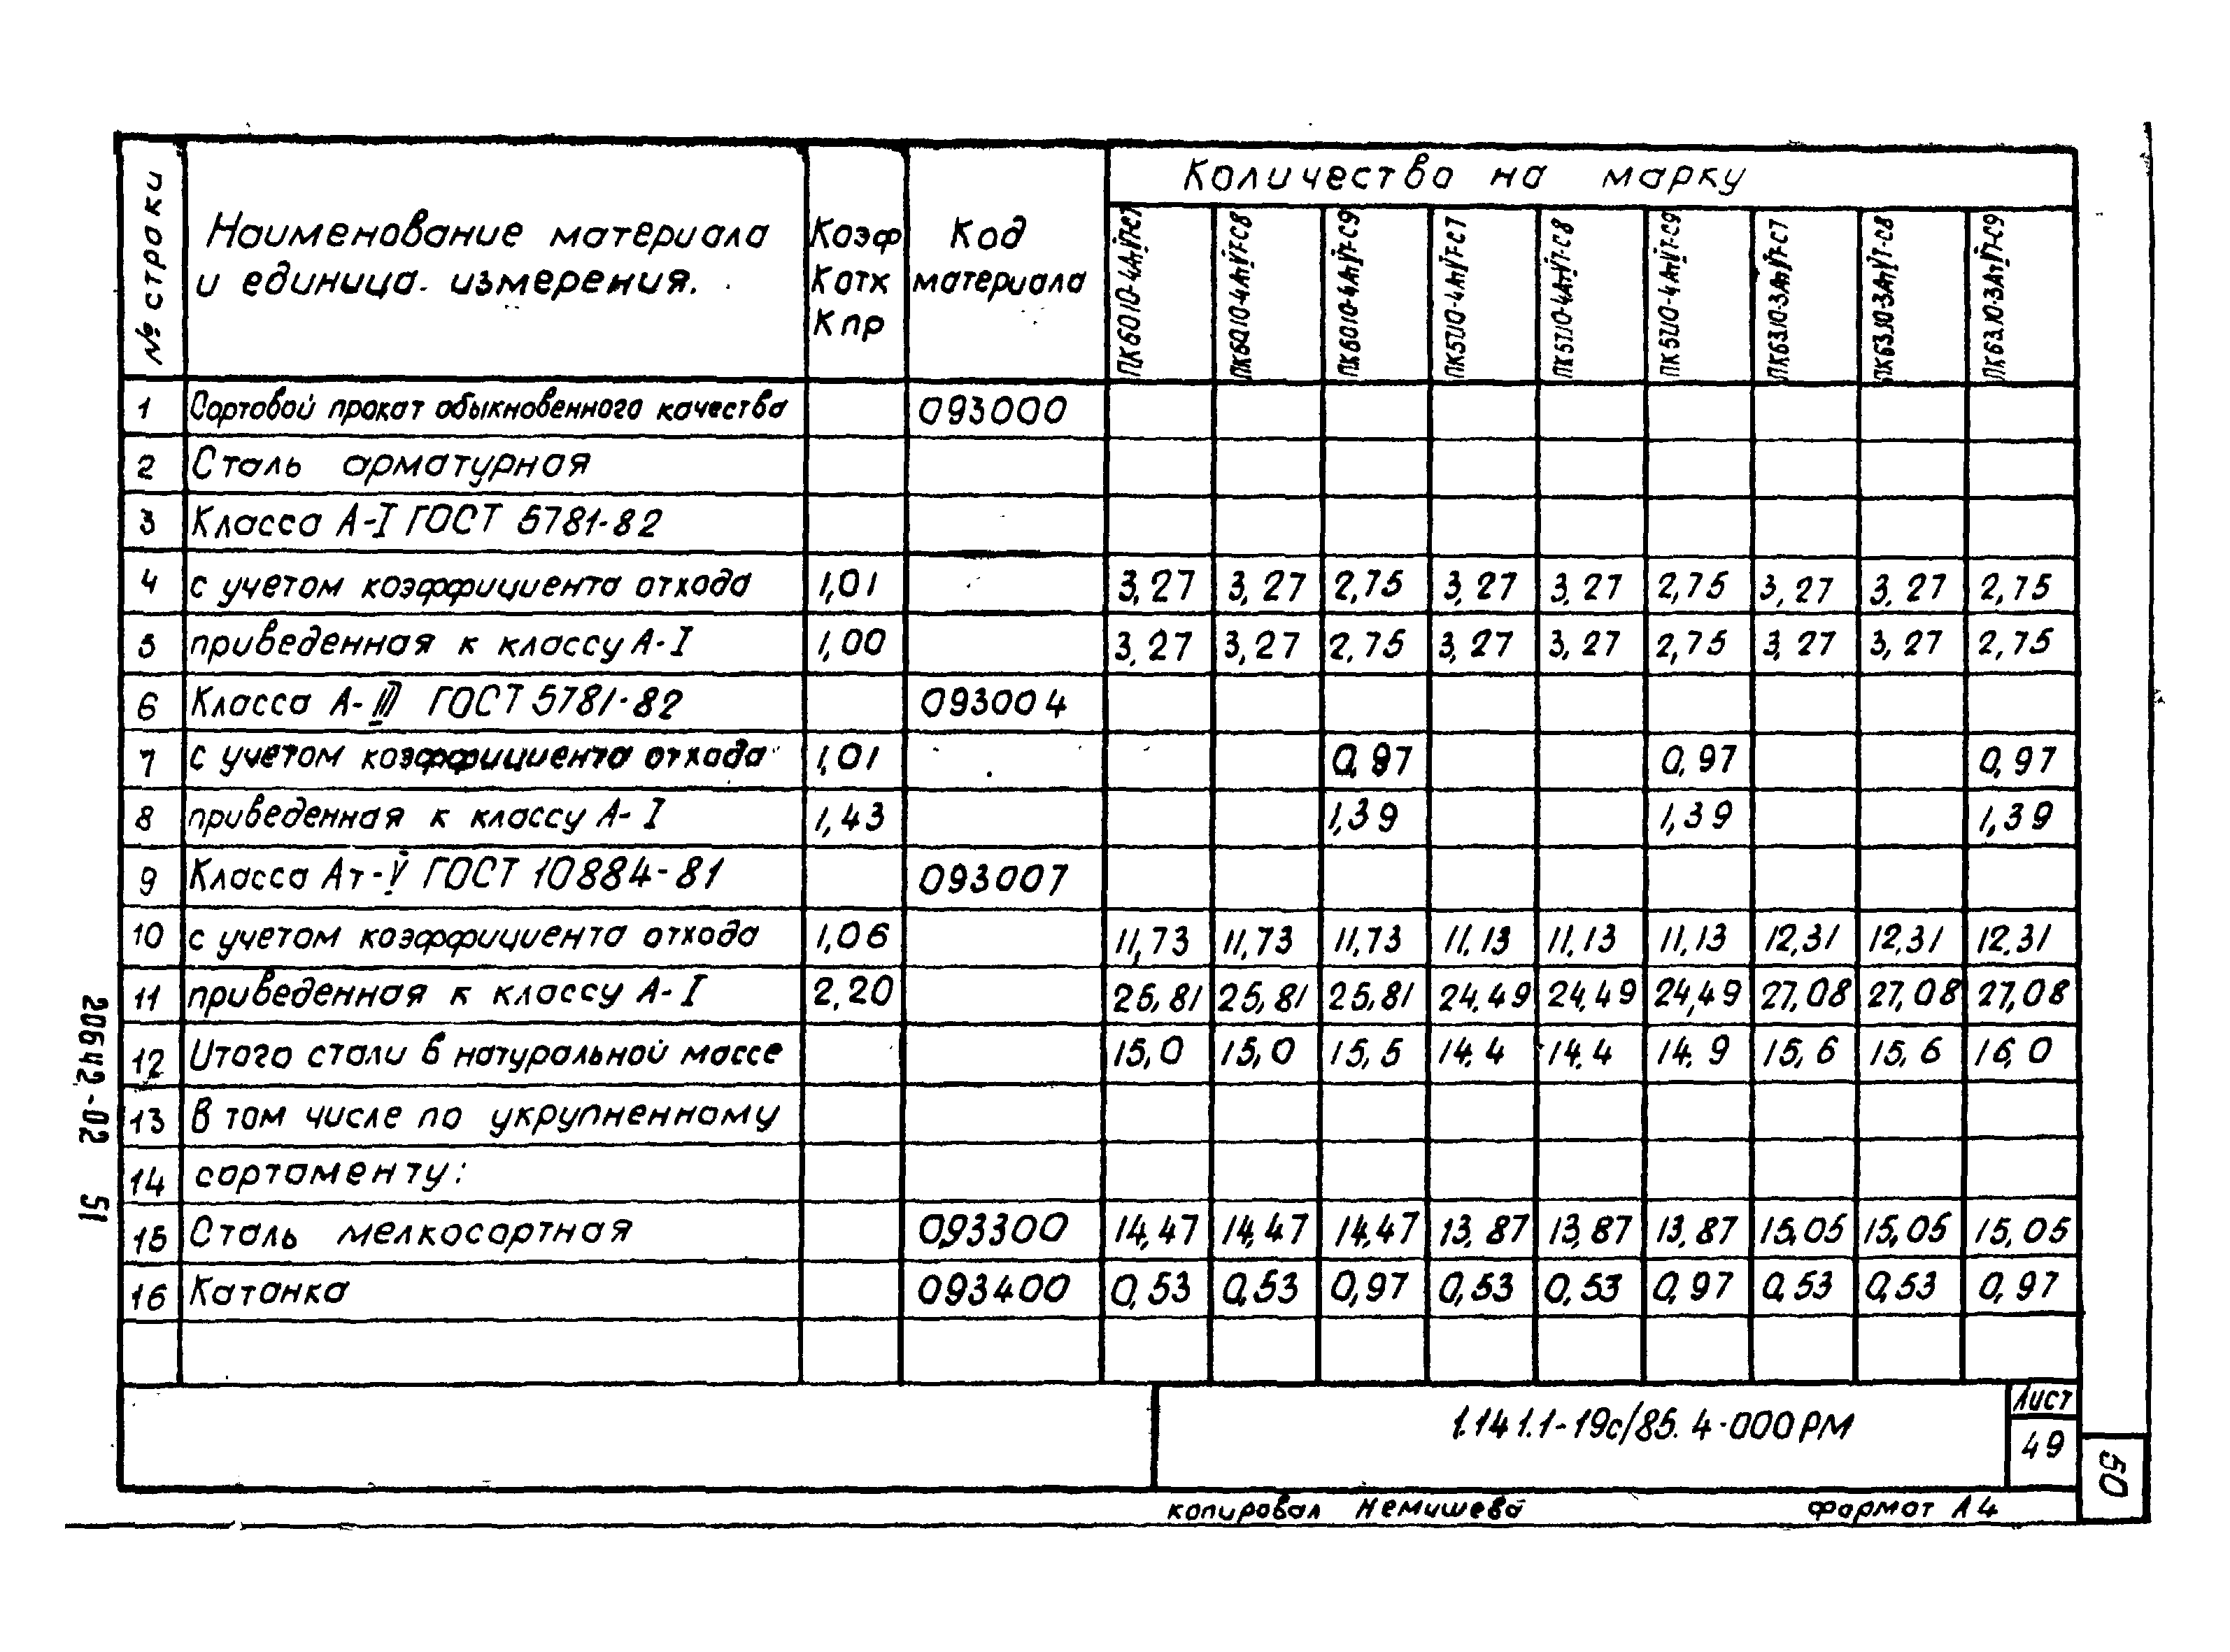 № строки | Наименование материала и единица измерения. | Коэф Котх Кпр | Код материала | Количество на марку
ПК60.10-4АтVТ-С7 | ПК60.10-4АтVТ-С8 | ПК60.10-4АтVТ-С9 | ПК57.10-4АтVТ-С7 | ПК57.10-4АтVТ-С8 | ПК57.10-4АтVТ-С9 | ПК63.10-3АтVТ-С7 | ПК63.10-3АтVТ-С8 | ПК63.10-3АтVТ-С9
1 Сортовой прокат обыкновенного качества 093000
2 Сталь арматурная
3 Класса А-I ГОСТ 5781-82
4 с учетом коэффициента отхода 1,01 3,27 3,27 2,75 3,27 3,27 2,75 3,27 3,27 2,75
5 приведенная к классу А-I 1,00 3,27 3,27 2,75 3,27 3,27 2,75 3,27 3,27 2,75
6 Класса А-III ГОСТ 5781-82 093004
7 с учетом коэффициента отхода 1,01 0,97 0,97 0,97
8 приведенная к классу А-I 1,43 1,39 1,39 1,39
9 Класса Ат-V ГОСТ 10884-81 093007
10 с учетом коэффициента отхода 1,06 11,73 11,73 11,73 11,13 11,13 11,13 12,31 12,31 12,31
11 приведенная к классу А-I 2,20 25,81 25,81 25,81 24,49 24,49 24,49 27,08 27,08 27,08
12 Итого стали в натуральной массе 15,0 15,0 15,5 14,4 14,4 14,9 15,6 15,6 16,0
13 В том числе по укрупненному
14 сортаменту:
15 Сталь мелкосортная 093300 14,47 14,47 14,47 13,87 13,87 13,87 15,05 15,05 15,05
16 Катанка 093400 0,53 0,53 0,97 0,53 0,53 0,97 0,53 0,53 0,97
20642-02 51
1.141.1-19с/85.4-000РМ
Лист
49
50
копировал Немишева формат А4